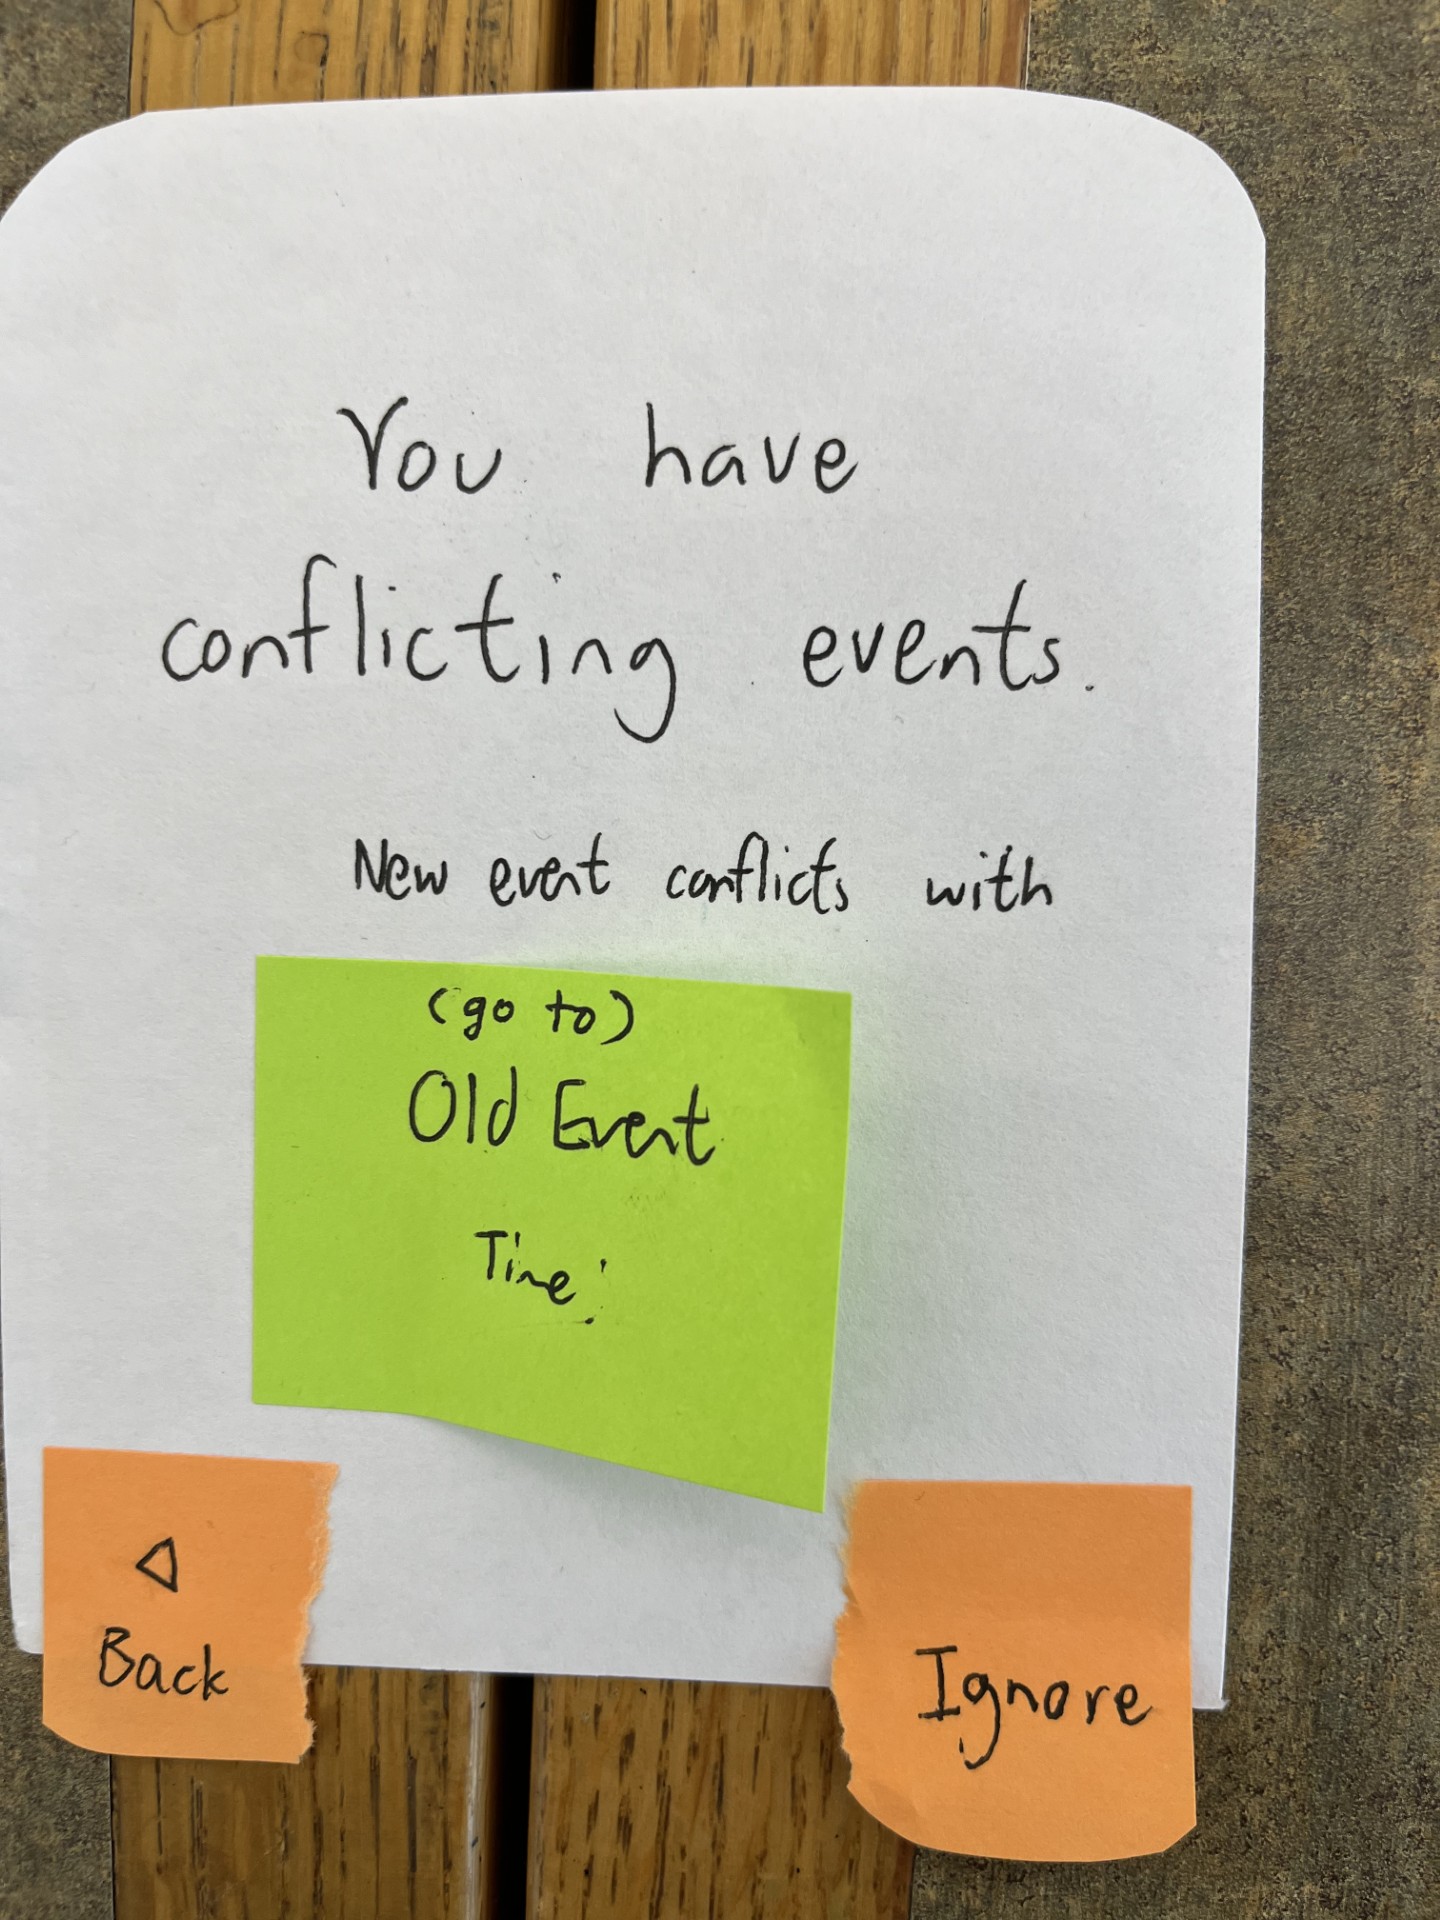 You have
conflicting events.
New event conflicts with
(go to)
Old Event
Time:
Back
Ignore